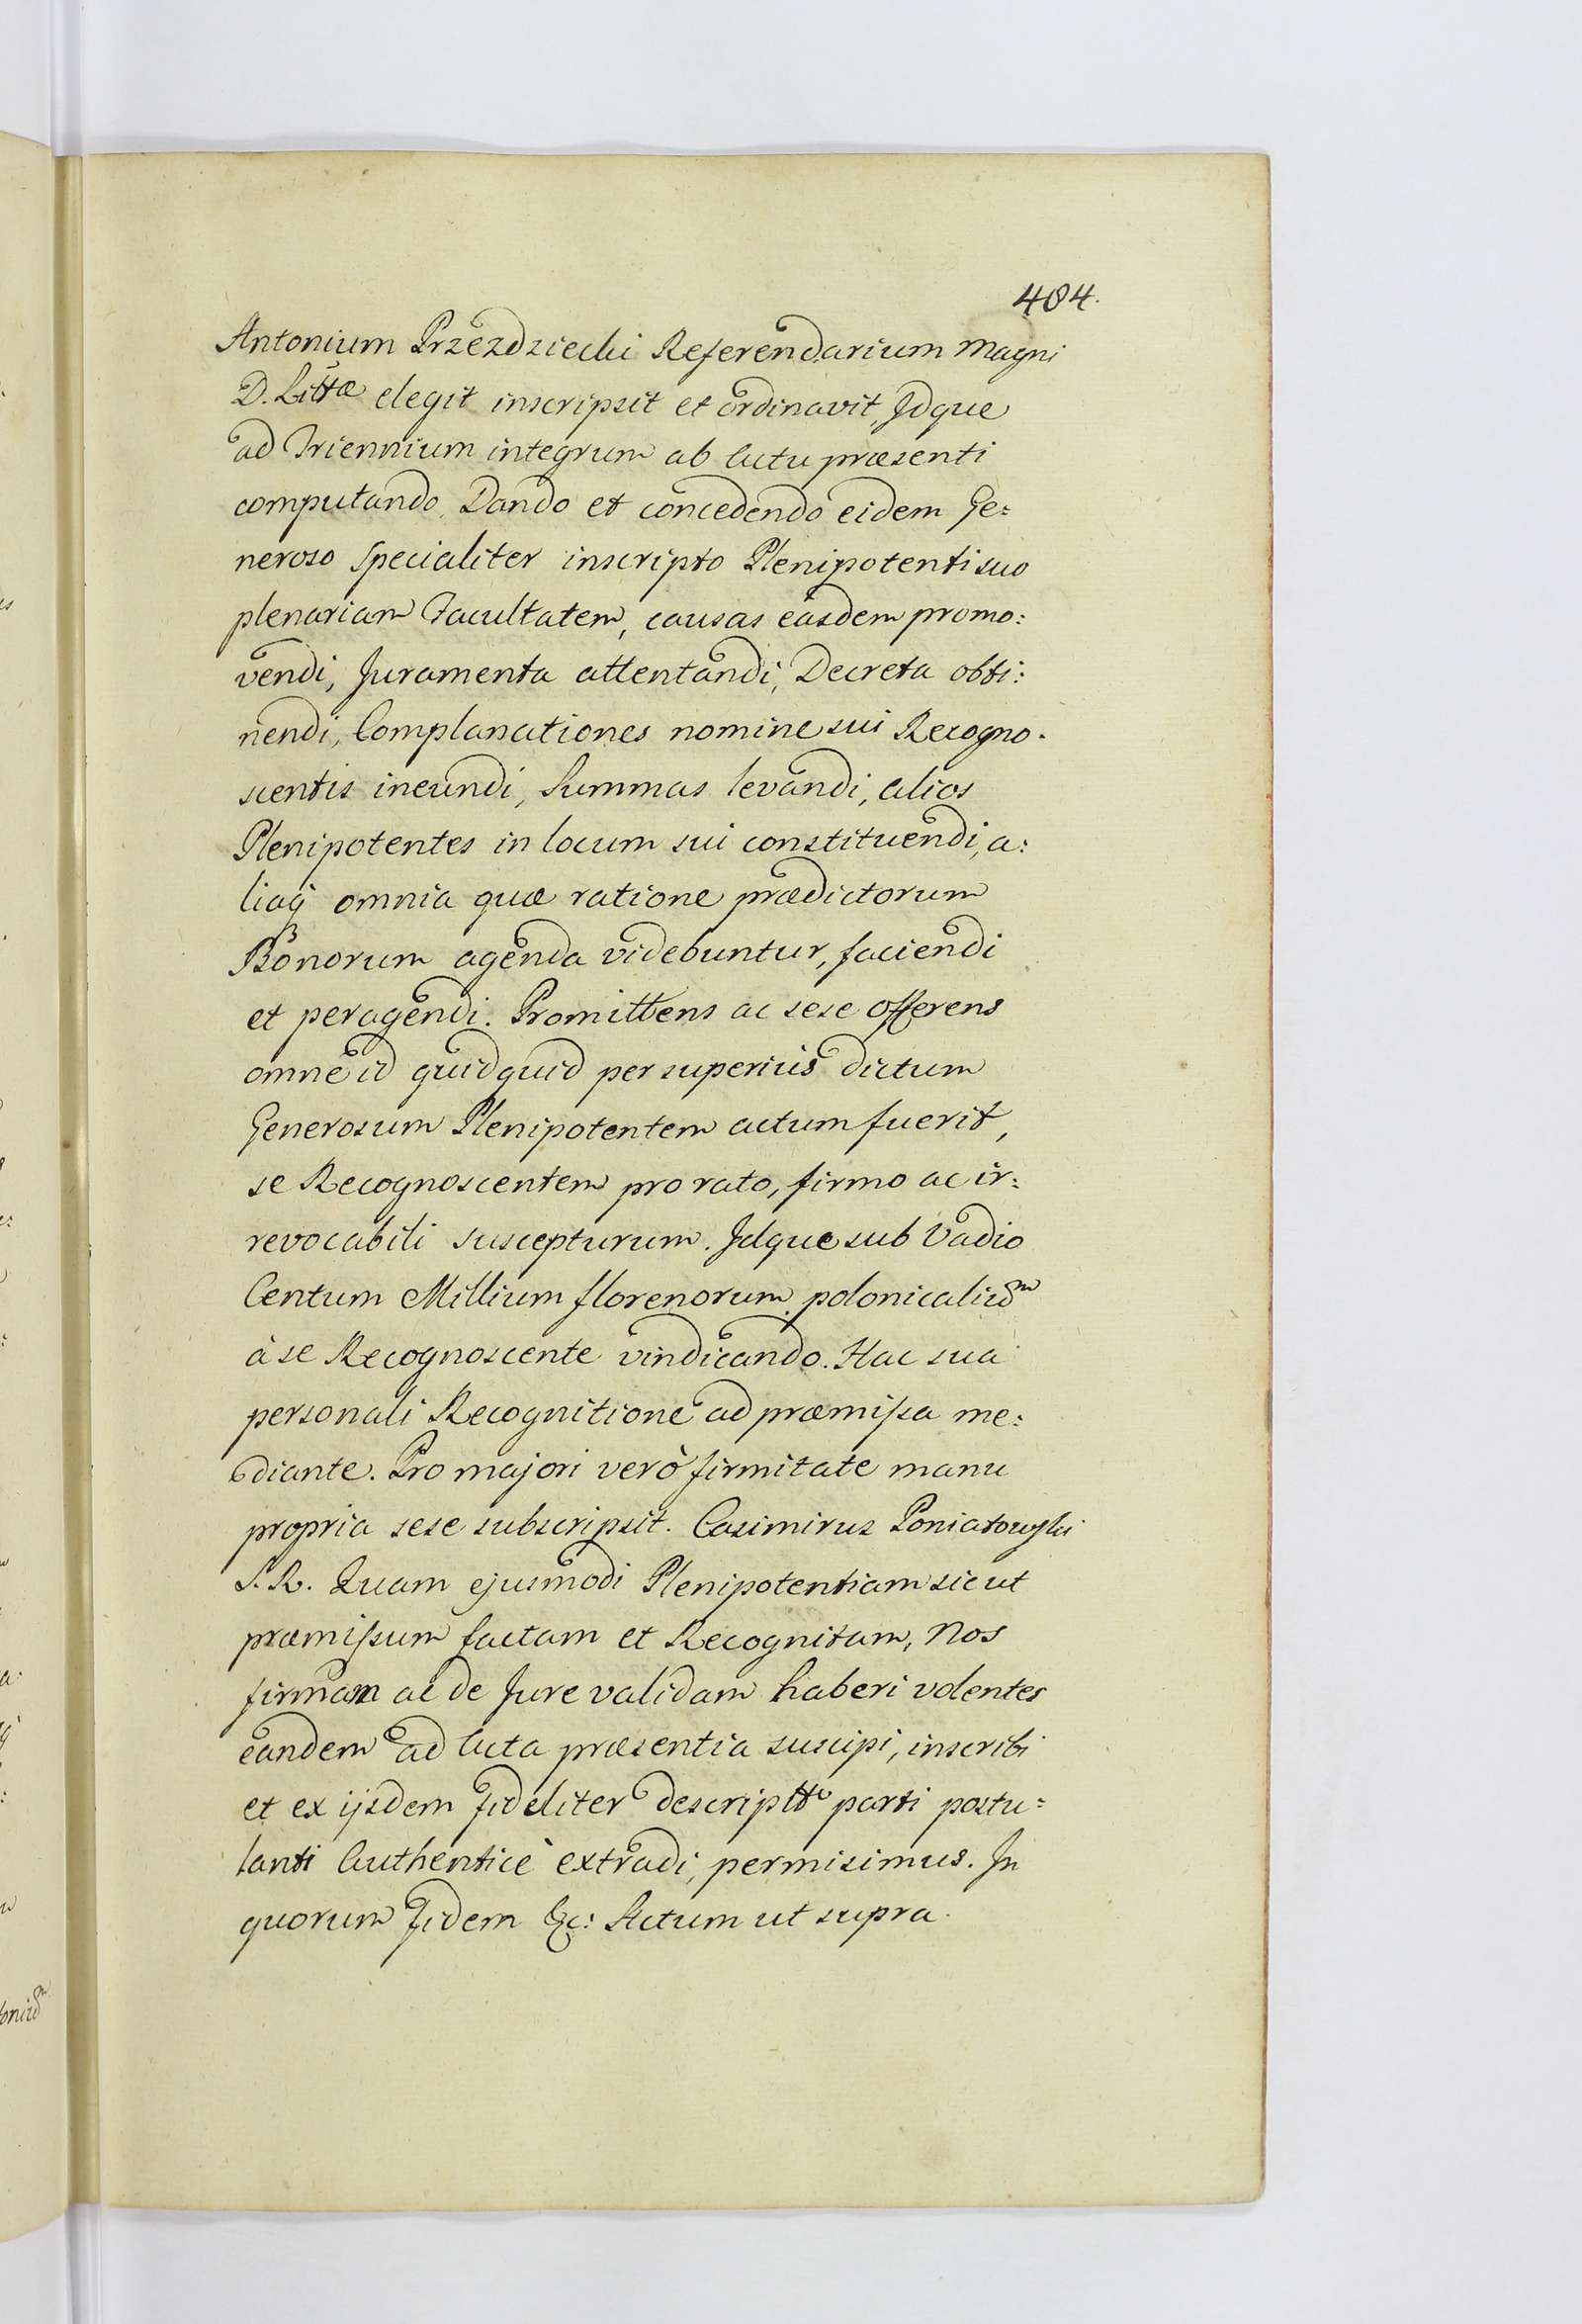 404.
Antonium Przezdziecki Referendarium Magni
D. Littæ elegit inscripsit et ordinavit, Idque
ad Triennium integrum ab Actu præsenti
computando. Dando et concedendo eidem Ge:
neroso specialiter inscripto Plenipotenti suo
plenariam Facultatem, causas easdem promo:
vendi, Juramenta attentandi, Decreta obti:
nendi, Complanationes nomine sui Recogno.
scentis ineundi, Summas levandi, alios
Plenipotentes in locum sui constituendi, a:
liaq omnia quæ ratione prædictorum
Bonorum agenda videbuntur, faciendi
et peragendi. Promittens ac sese offerens
omne id quidquid per superius dictum
Generosum Plenipotentem actum fuerit,
se Recognoscentem pro rato, firmo ac ir:
revocabili suscepturum. Idque sub Vadio
Centum Millium florenorum polonicaliu͞m
à se Recognoscente vindicando. Hac sua
personali Recognitione ad præmissa me:
diante. Pro majori verò firmitate manu
propria sese subscripsit. Casimirus Poniatowski
S. R. Quam ejusmodi Plenipotentiam sicut
præmissum factam et Recognitam, Nos
firmam ac de Jure validam haberi volentes
eandem ad Acta præsentia suscipi, inscribi
et ex ijsdem fideliter descriptt͞o parti postu:
lanti Authenticè extradi, permisimus. In
quorum Fidem &c: Actum ut supra.